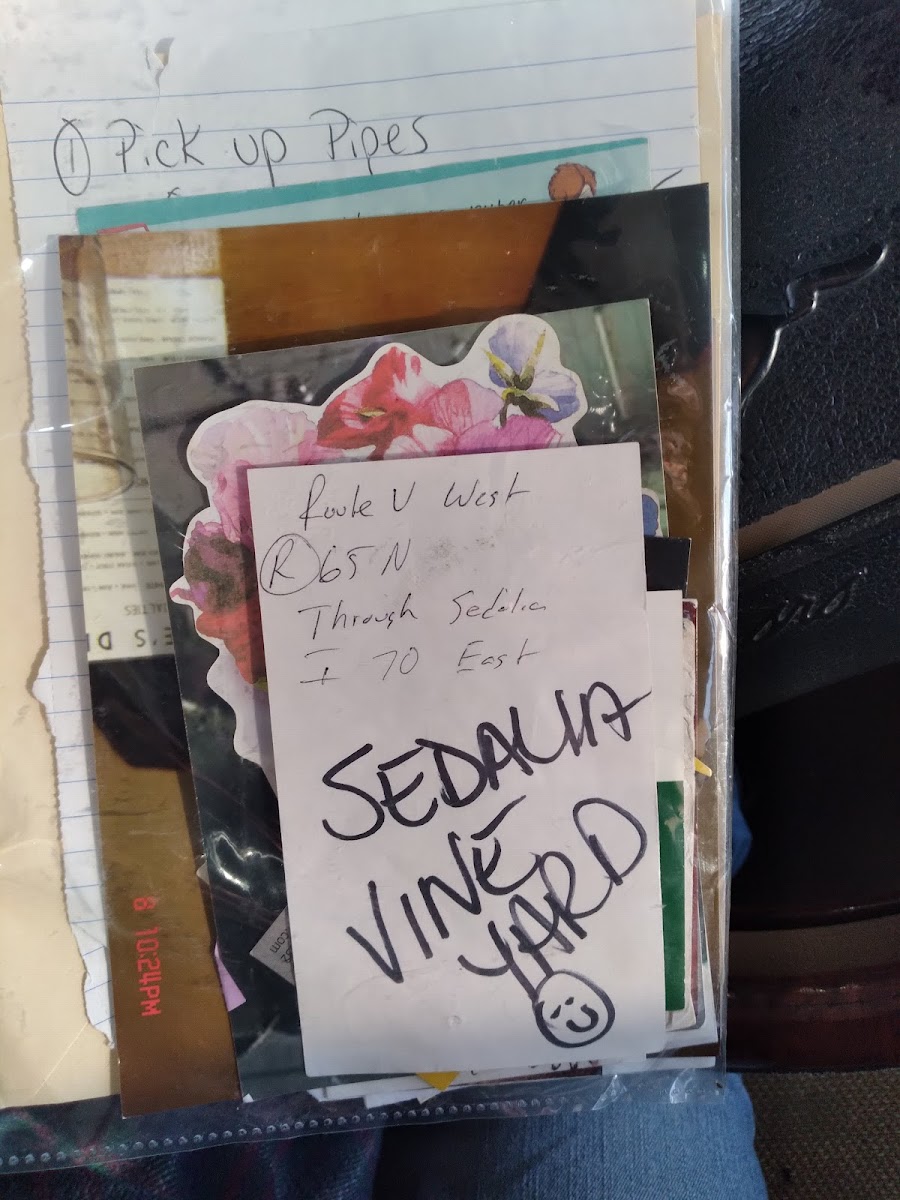 ① Pick up Pipes
Route U West
Ⓡ 65 N
Through Sedalia
I 70 East
SEDALIA
VINE
YARD
8 10:24PM